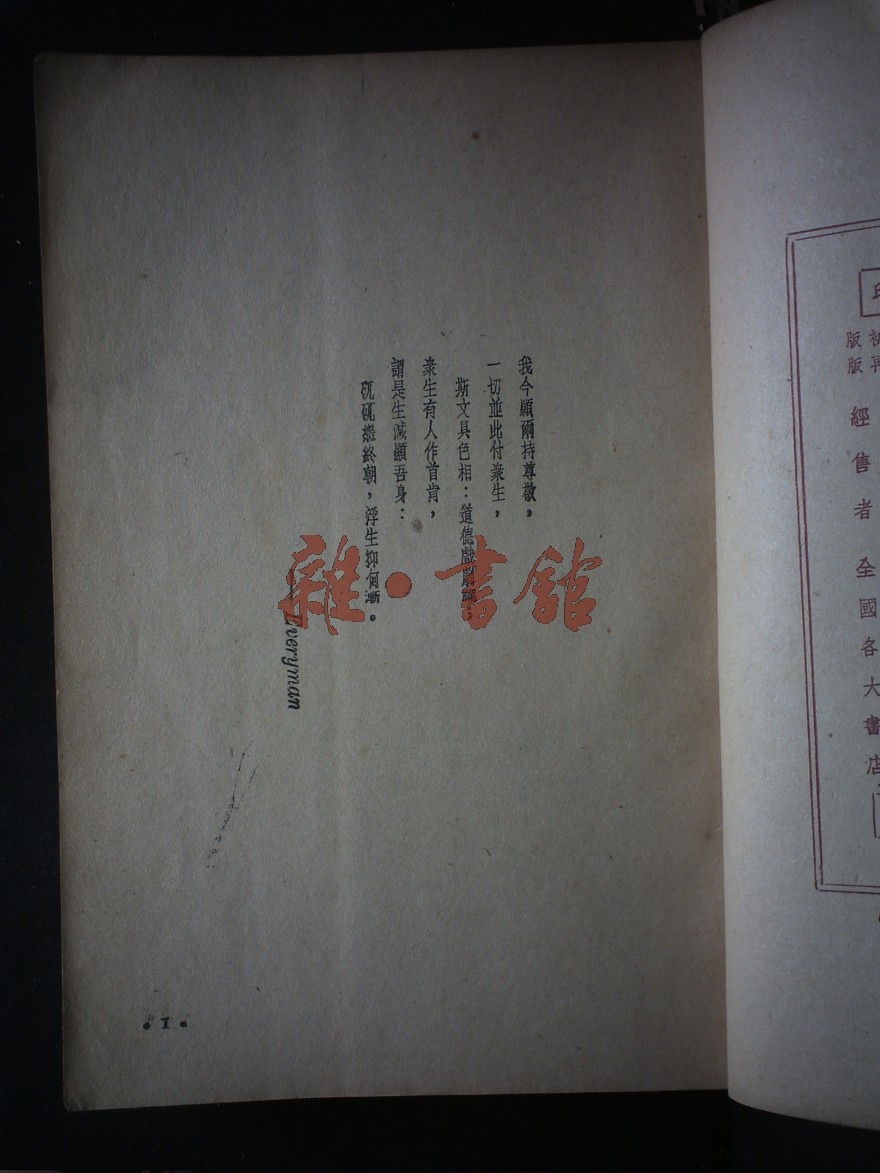 我今願爾持尊敬，
一切並此付衆生，
斯文具色相：道德戲
衆生有人作首肯，
謂是生滅顯吾身：
矻矻繼終朝，浮生抑何漸。
Everyman
雜·書館
•1•
初
再
版
版
經售者 全國各大書店